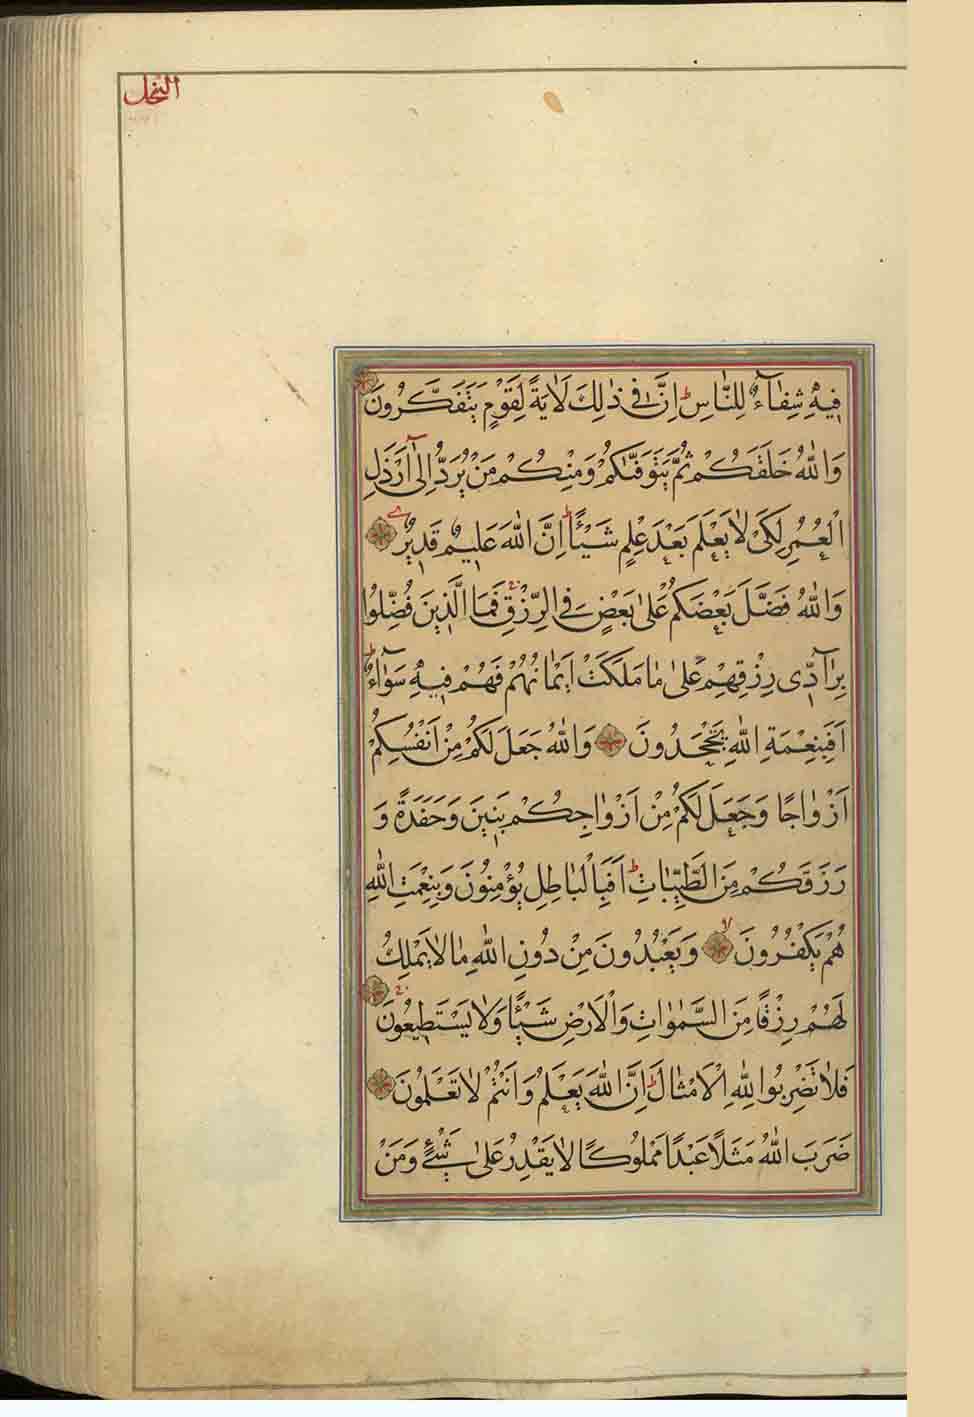 النحل
فِيهِ شِفَآءٌ لِلنَّاسِ ط اِنَّ فِي ذٰلِكَ لَاٰيَةً لِقَوْمٍ يَتَفَكَّرُونَ
وَاللّٰهُ خَلَقَكُمْ ثُمَّ يَتَوَفّٰيكُمْ وَمِنْكُمْ مَنْ يُرَدُّ اِلٰٓى اَرْذَلِ
الْعُمُرِ لِكَيْ لَا يَعْلَمَ بَعْدَ عِلْمٍ شَيْـًٔا ط اِنَّ اللّٰهَ عَلِيمٌ قَدِيرٌ
وَاللّٰهُ فَضَّلَ بَعْضَكُمْ عَلٰى بَعْضٍ فِي الرِّزْقِ فَمَا الَّذِينَ فُضِّلُوا
بِرَآدِّي رِزْقِهِمْ عَلٰى مَا مَلَكَتْ اَيْمَانُهُمْ فَهُمْ فِيهِ سَوَآءٌ ط
اَفَبِنِعْمَةِ اللّٰهِ يَجْحَدُونَ وَاللّٰهُ جَعَلَ لَكُمْ مِنْ اَنْفُسِكُمْ
اَزْوَاجًا وَجَعَلَ لَكُمْ مِنْ اَزْوَاجِكُمْ بَنِينَ وَحَفَدَةً وَ
رَزَقَكُمْ مِنَ الطَّيِّبَاتِ ط اَفَبِالْبَاطِلِ يُؤْمِنُونَ وَبِنِعْمَتِ اللّٰهِ
هُمْ يَكْفُرُونَ لا وَيَعْبُدُونَ مِنْ دُونِ اللّٰهِ مَا لَا يَمْلِكُ
لَهُمْ رِزْقًا مِنَ السَّمٰوَاتِ وَالْاَرْضِ شَيْـًٔا وَلَا يَسْتَطِيعُونَ
فَلَا تَضْرِبُوا لِلّٰهِ الْاَمْثَالَ ط اِنَّ اللّٰهَ يَعْلَمُ وَاَنْتُمْ لَا تَعْلَمُونَ
ضَرَبَ اللّٰهُ مَثَلًا عَبْدًا مَمْلُوكًا لَا يَقْدِرُ عَلٰى شَيْءٍ وَمَنْ